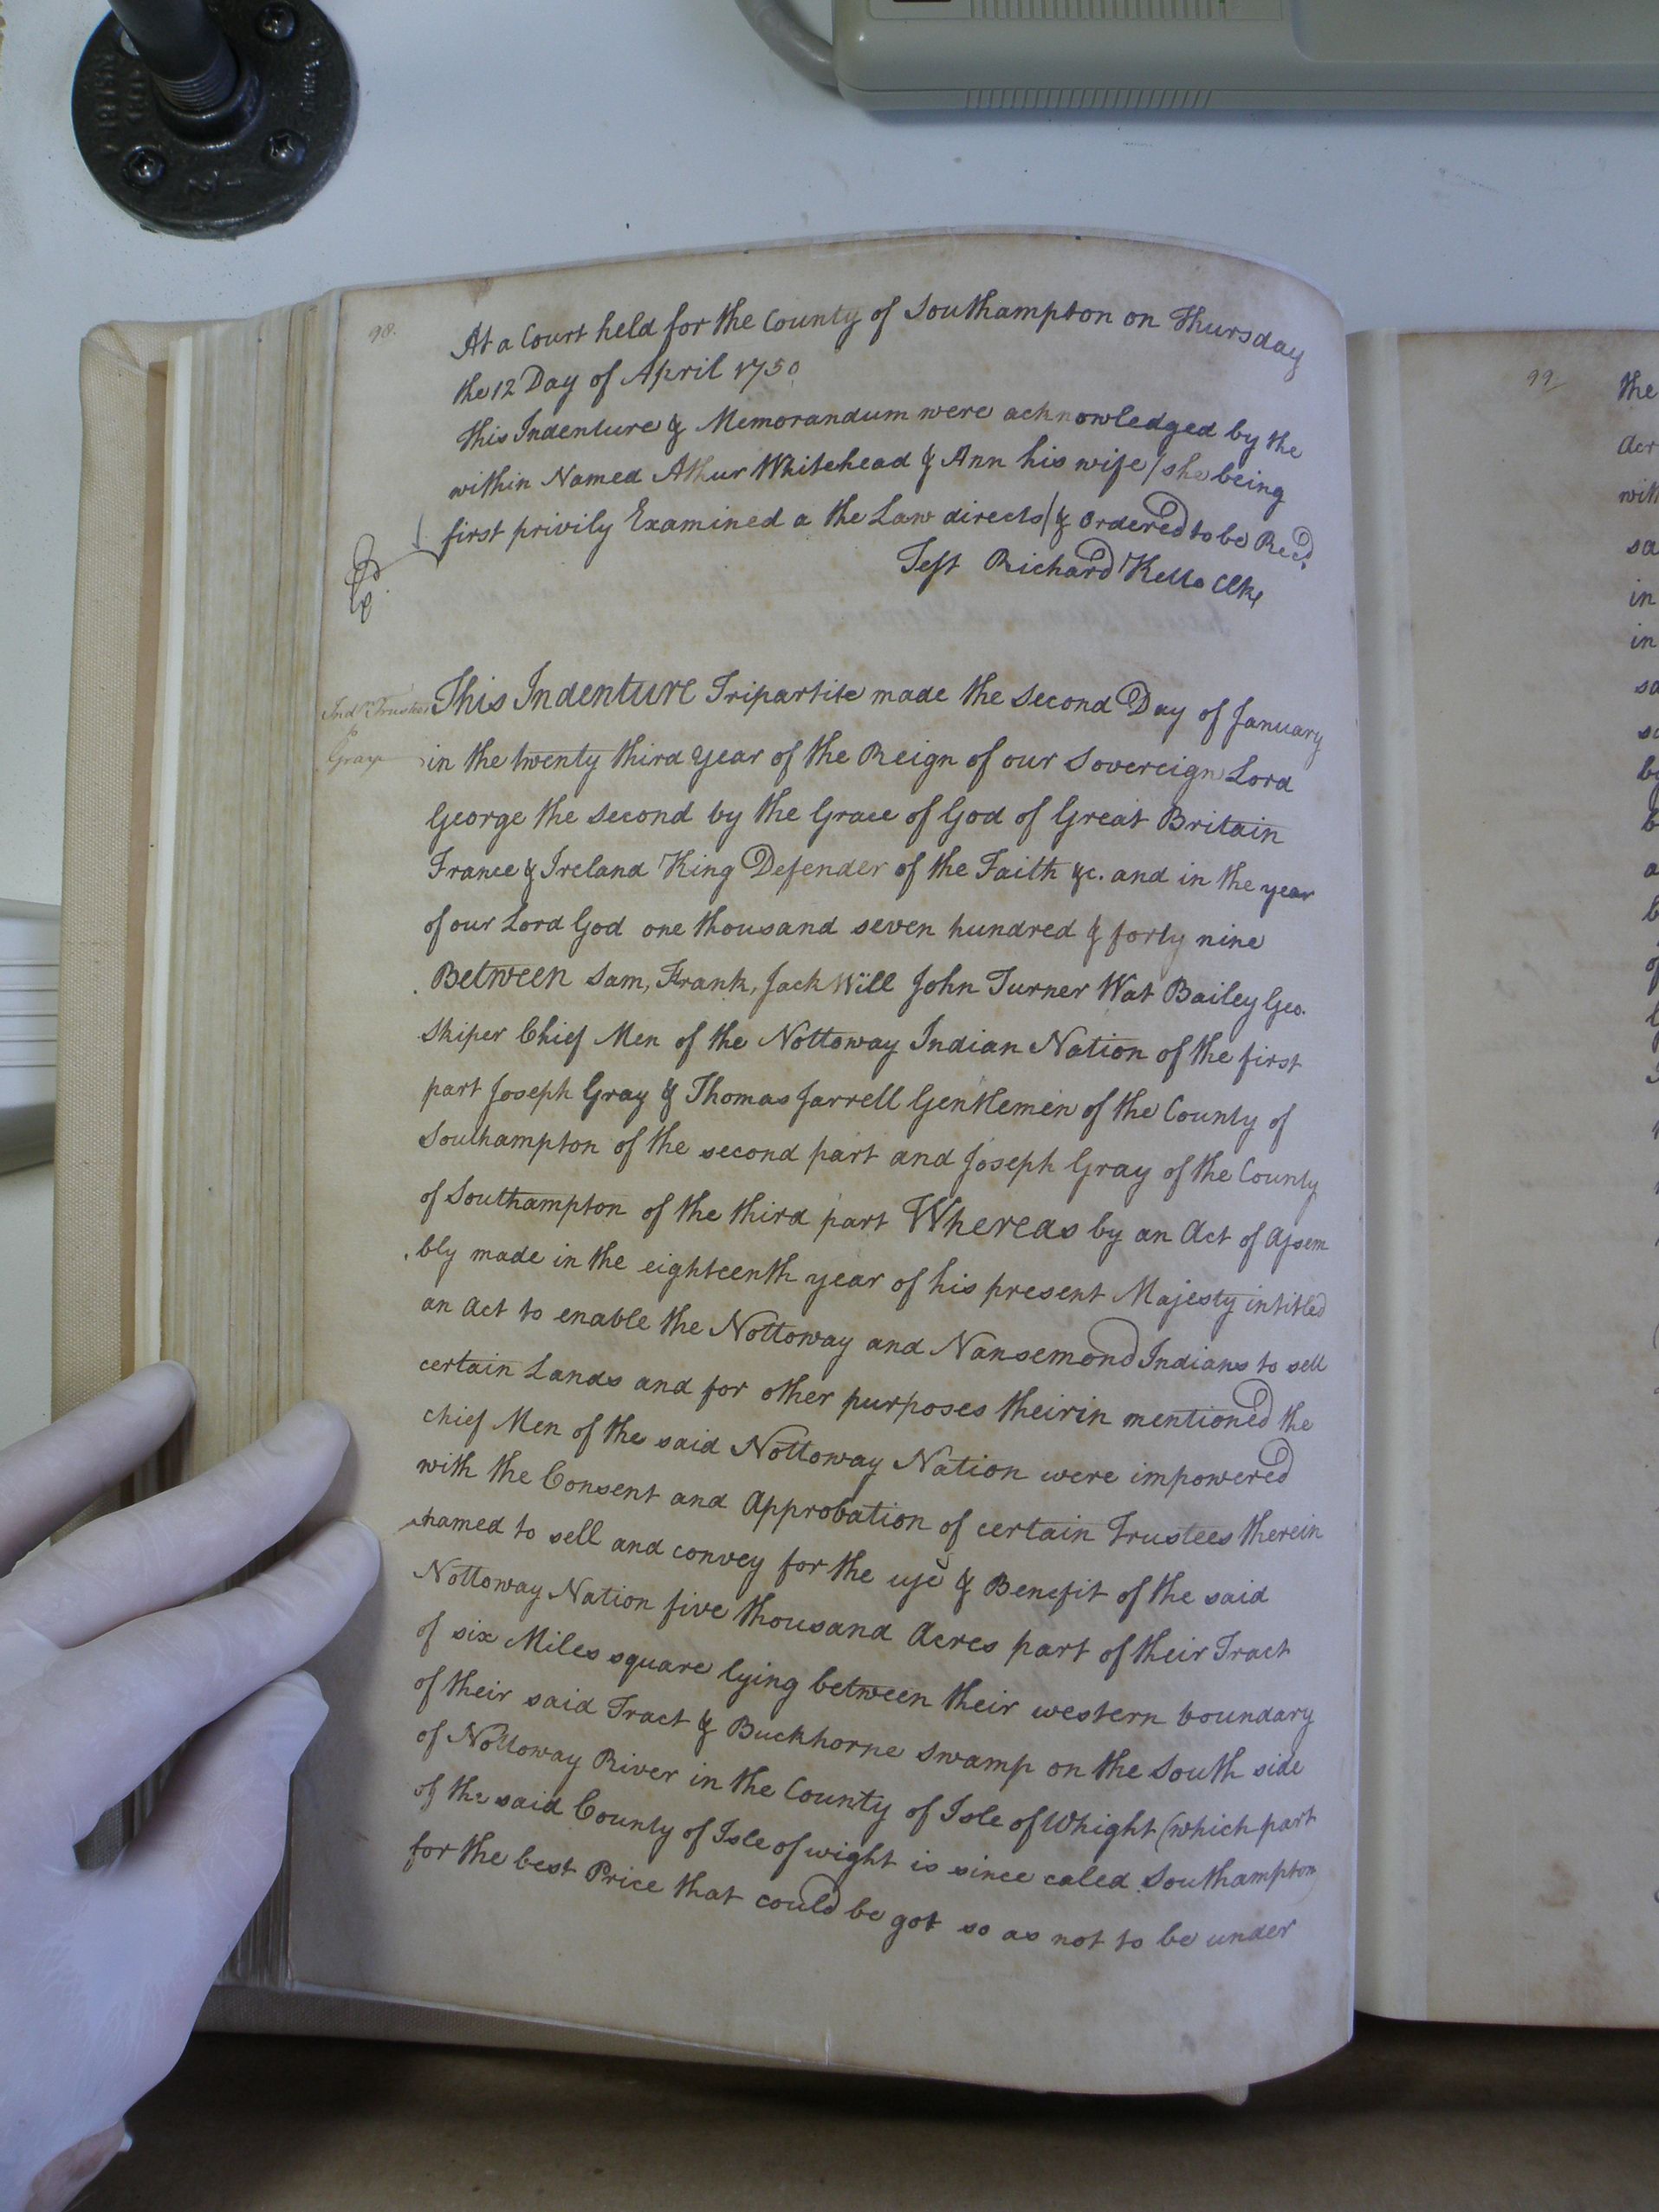 98.
At a Court held for the County of Southampton on Thursday
the 12 Day of April 1750
This Indenture & Memorandum were acknowledged by the
within Named Athur Whitehead & Ann his wife /she being
first privily Examined a the Law directs/ & Ordered to be Recd.
Test Richard Kello Clk
Indn. Trustees
to
Gray
This Indenture Tripartite made the Second Day of January
in the twenty third Year of the Reign of our Sovereign Lord
George the Second by the Grace of God of Great Britain
France & Ireland King Defender of the Faith &c. and in the year
of our Lord God one thousand seven hundred & forty nine
Between Sam, Frank, Jack Will John Turner Wat Bailey Geo.
Skiper Chief Men of the Nottoway Indian Nation of the first
part Joseph Gray & Thomas Jarrell Gentlemen of the County of
Southampton of the second part and Joseph Gray of the County
of Southampton of the third part Whereas by an Act of Assem
bly made in the eighteenth year of his present Majesty intitled
an Act to enable the Nottoway and Nansemond Indians to sell
certain Lands and for other purposes theirin mentioned the
chief Men of the said Nottoway Nation were impowered
with the Consent and Approbation of certain Trustees therein
named to sell and convey for the use & Benefit of the said
Nottoway Nation five thousand Acres part of their Tract
of six Miles square lying between their western boundary
of their said Tract & Buckhorne Swamp on the South side
of Nottoway River in the County of Isle of Whight (which part
of the said County of Isle of wight is since caled Southampton)
for the best Price that could be got so as not to be under
99
the
Acr
with
sa
in
in